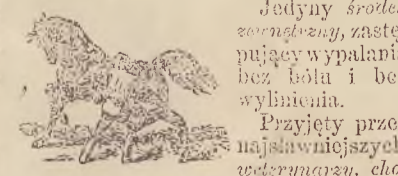 Jedyny środek
zewnętrzny, zastę-
pujący wypalani
bez bólu i be
wylinienia.
Przyjęty prze
najsławniejszych
weterynarzy, cho